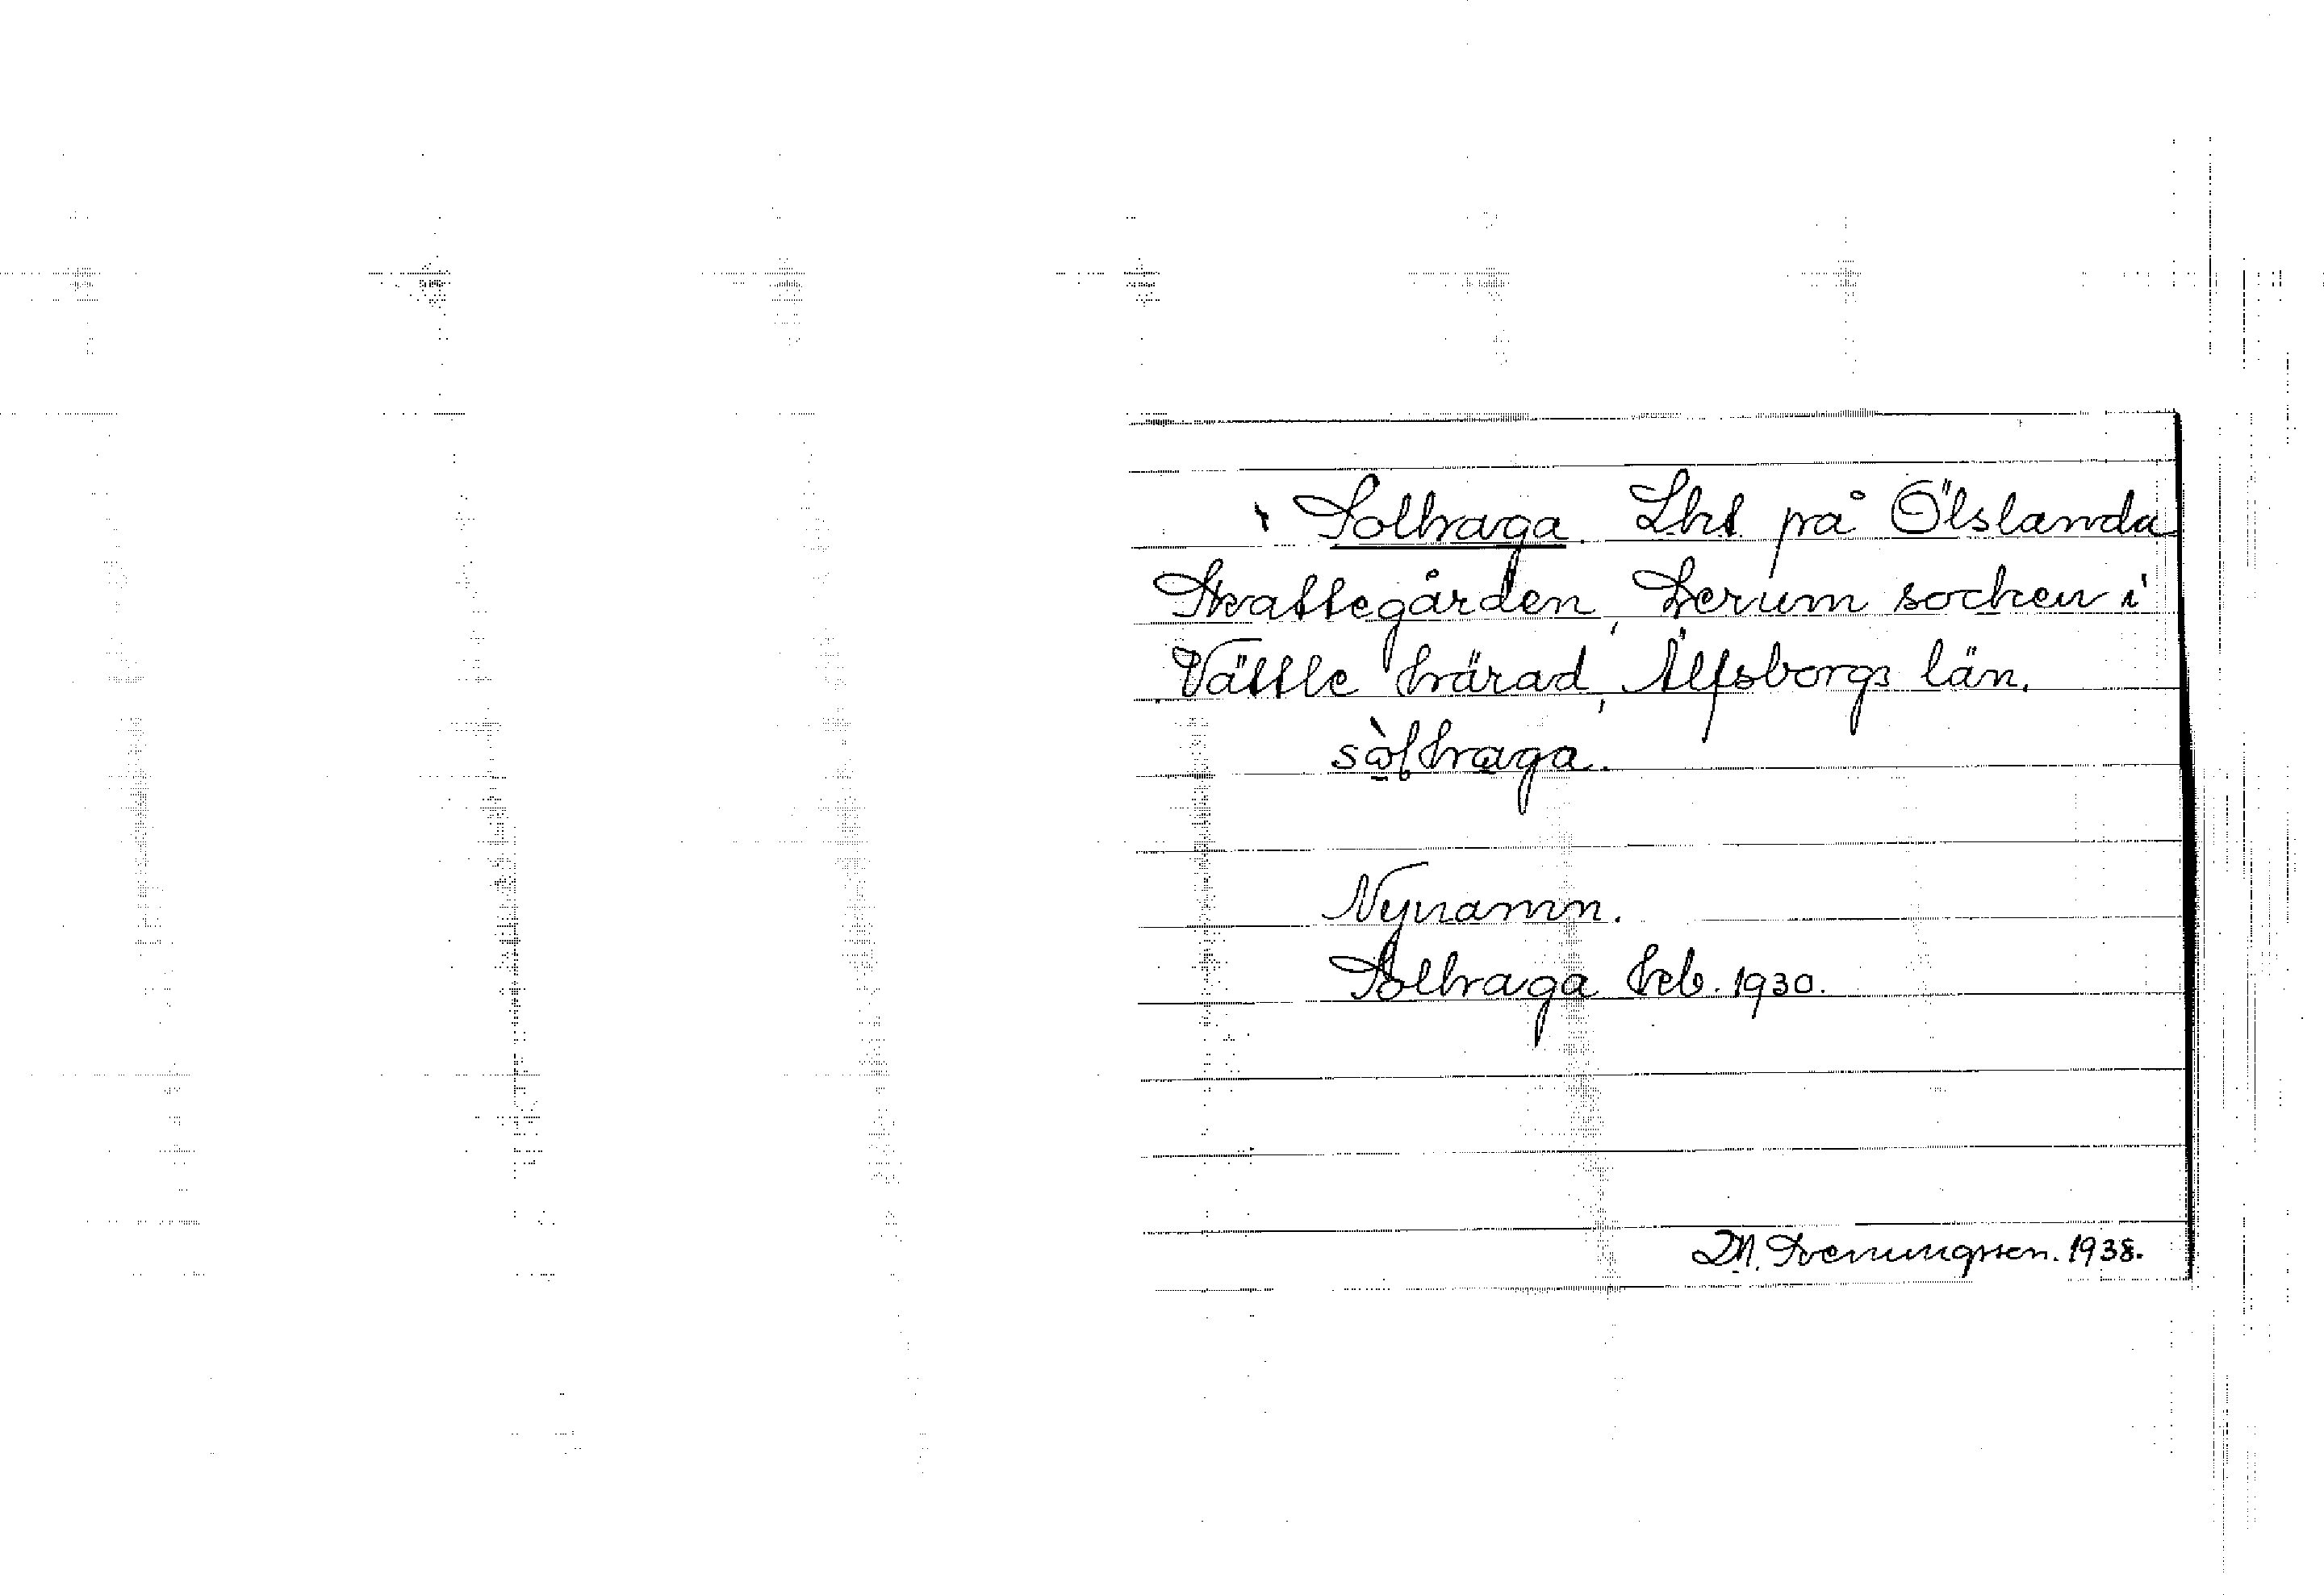 Solhaga. Lht på Ölslanda
Skattegården, Lerum socken i
Vättle härad, Älfsborgs län.
sòlhaga.
Nynamn.
Solhaga Jrb. 1930.
D.N. Svenungsson. 1938.